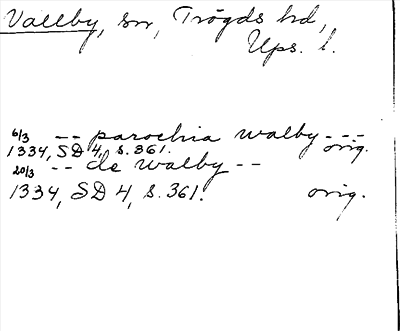 Vallby, sn, Trögds hd,
Ups. l.
6/3 -- parochia walby ---
1334, SD 4, s. 361. orig.
20/3 -- de walby --
1334, SD 4, s. 361. orig.